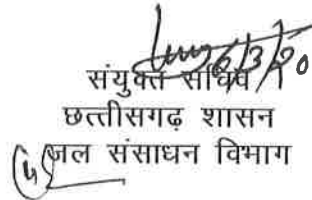 6/3/20
संयुक्त सचिव
छत्तीसगढ़ शासन
जल संसाधन विभाग